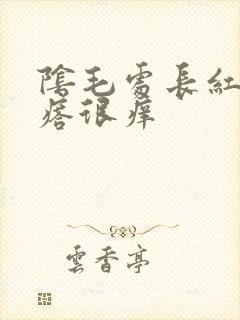 陰毛處長紅
痞很癢
雲香亭